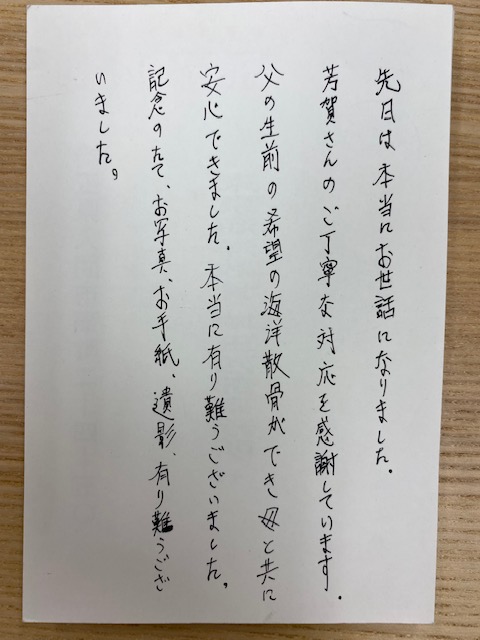 先日は本当にお世話になりました。
芳賀さんのご丁寧な対応を感謝しています。
父の生前の希望の海洋散骨ができ母と共に
安心できました。本当に有り難うございました。
記念のたて、お写真、お手紙、遺影、有り難うござ
いました。